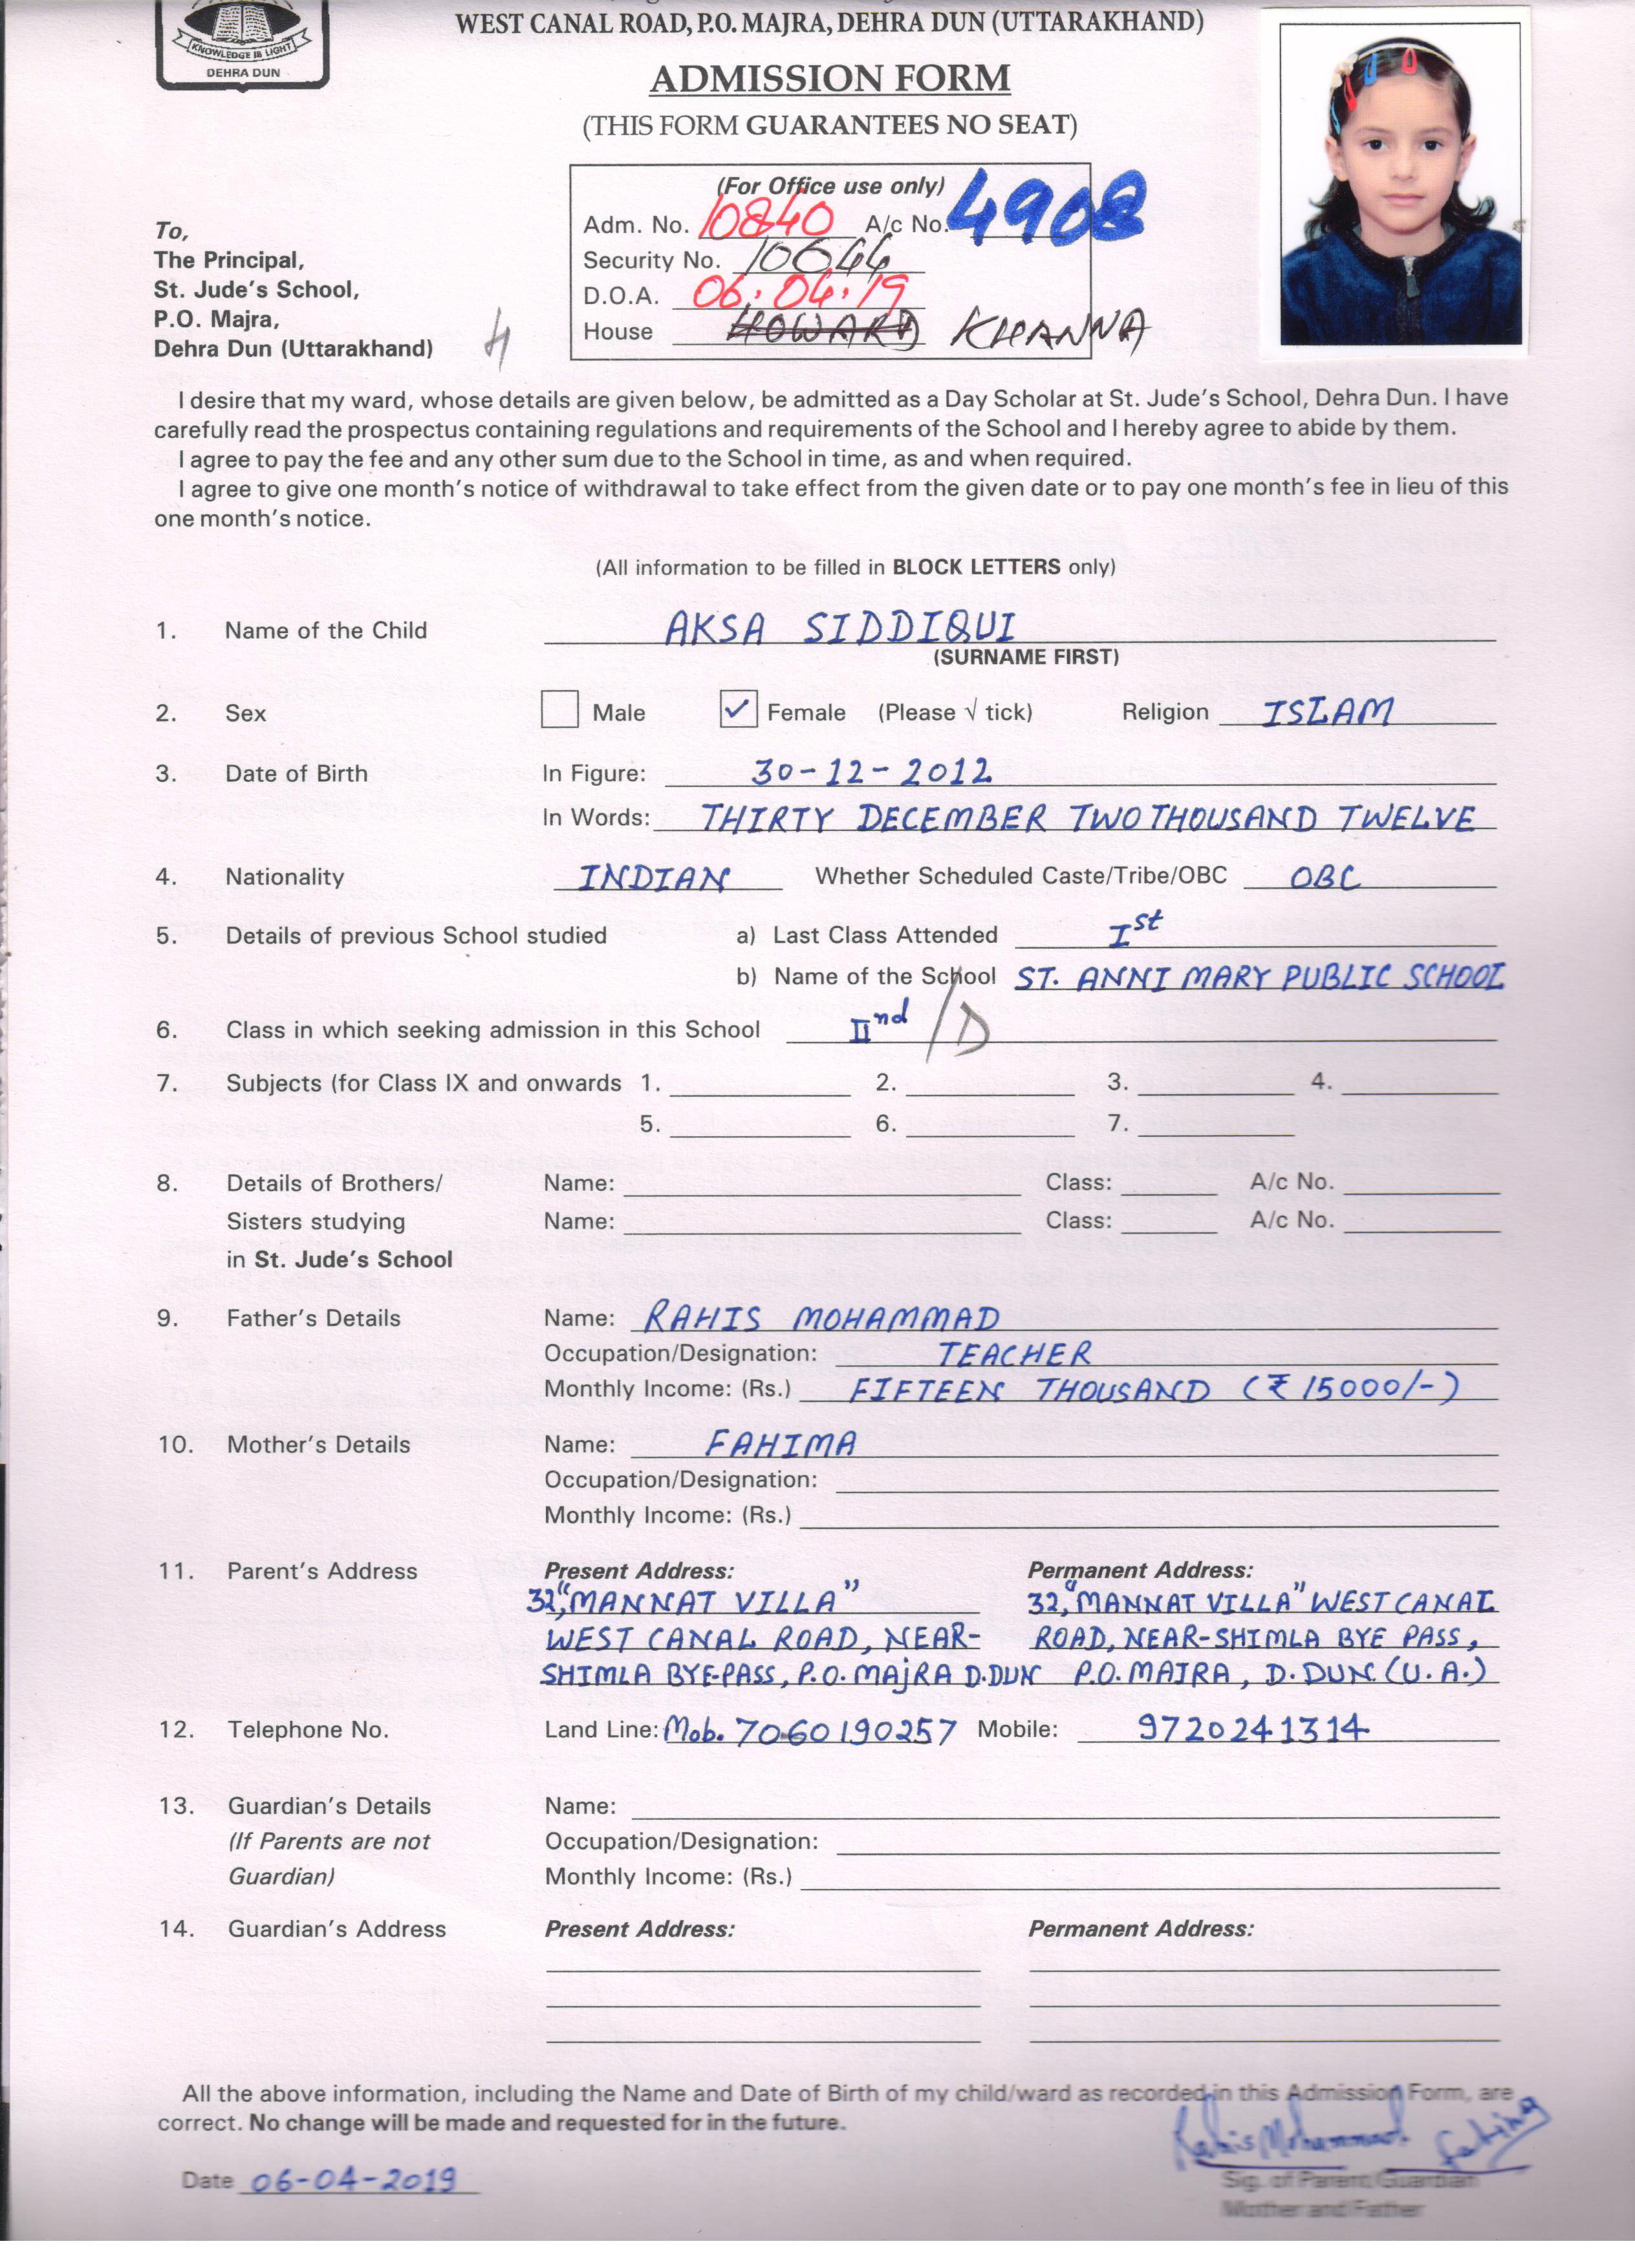 WEST CANAL ROAD, P.O. MAJRA, DEHRA DUN (UTTARAKHAND)
KNOWLEDGE IS LIGHT
DEHRA DUN
ADMISSION FORM
(THIS FORM GUARANTEES NO SEAT)
(For Office use only)
Adm. No. 10840 A/c No. 4908
Security No. 10644
D.O.A. 06.04.19
House HOWARD KHANNA
To,
The Principal,
St. Jude's School,
P.O. Majra,
Dehra Dun (Uttarakhand)
I desire that my ward, whose details are given below, be admitted as a Day Scholar at St. Jude's School, Dehra Dun. I have
carefully read the prospectus containing regulations and requirements of the School and I hereby agree to abide by them.
I agree to pay the fee and any other sum due to the School in time, as and when required.
I agree to give one month's notice of withdrawal to take effect from the given date or to pay one month's fee in lieu of this
one month's notice.
(All information to be filled in BLOCK LETTERS only)
1. Name of the Child AKSA SIDDIQUI
(SURNAME FIRST)
2. Sex Male ✓ Female (Please √ tick) Religion ISLAM
3. Date of Birth In Figure: 30-12-2012
In Words: THIRTY DECEMBER TWO THOUSAND TWELVE
4. Nationality INDIAN Whether Scheduled Caste/Tribe/OBC OBC
5. Details of previous School studied a) Last Class Attended Ist
b) Name of the School ST. ANNI MARY PUBLIC SCHOOL
6. Class in which seeking admission in this School IInd /D
7. Subjects (for Class IX and onwards 1. 2. 3. 4.
5. 6. 7.
8. Details of Brothers/ Name: Class: A/c No.
Sisters studying Name: Class: A/c No.
in St. Jude's School
9. Father's Details Name: RAHIS MOHAMMAD
Occupation/Designation: TEACHER
Monthly Income: (Rs.) FIFTEEN THOUSAND (₹ 15000/-)
10. Mother's Details Name: FAHIMA
Occupation/Designation:
Monthly Income: (Rs.)
11. Parent's Address Present Address: Permanent Address:
32, "MANNAT VILLA" 32, "MANNAT VILLA" WEST CANAL
WEST CANAL ROAD, NEAR- ROAD, NEAR-SHIMLA BYE PASS,
SHIMLA BYE-PASS, P.O. MAjRA D.DUN P.O. MAJRA, D.DUN. (U.A.)
12. Telephone No. Land Line: Mob. 7060190257 Mobile: 9720241314
13. Guardian's Details Name:
(If Parents are not Occupation/Designation:
Guardian) Monthly Income: (Rs.)
14. Guardian's Address Present Address: Permanent Address:
All the above information, including the Name and Date of Birth of my child/ward as recorded in this Admission Form, are
correct. No change will be made and requested for in the future.
Rahis Mohammad
Date 06-04-2019 Sig. of Parent/Guardian
Mother and Father